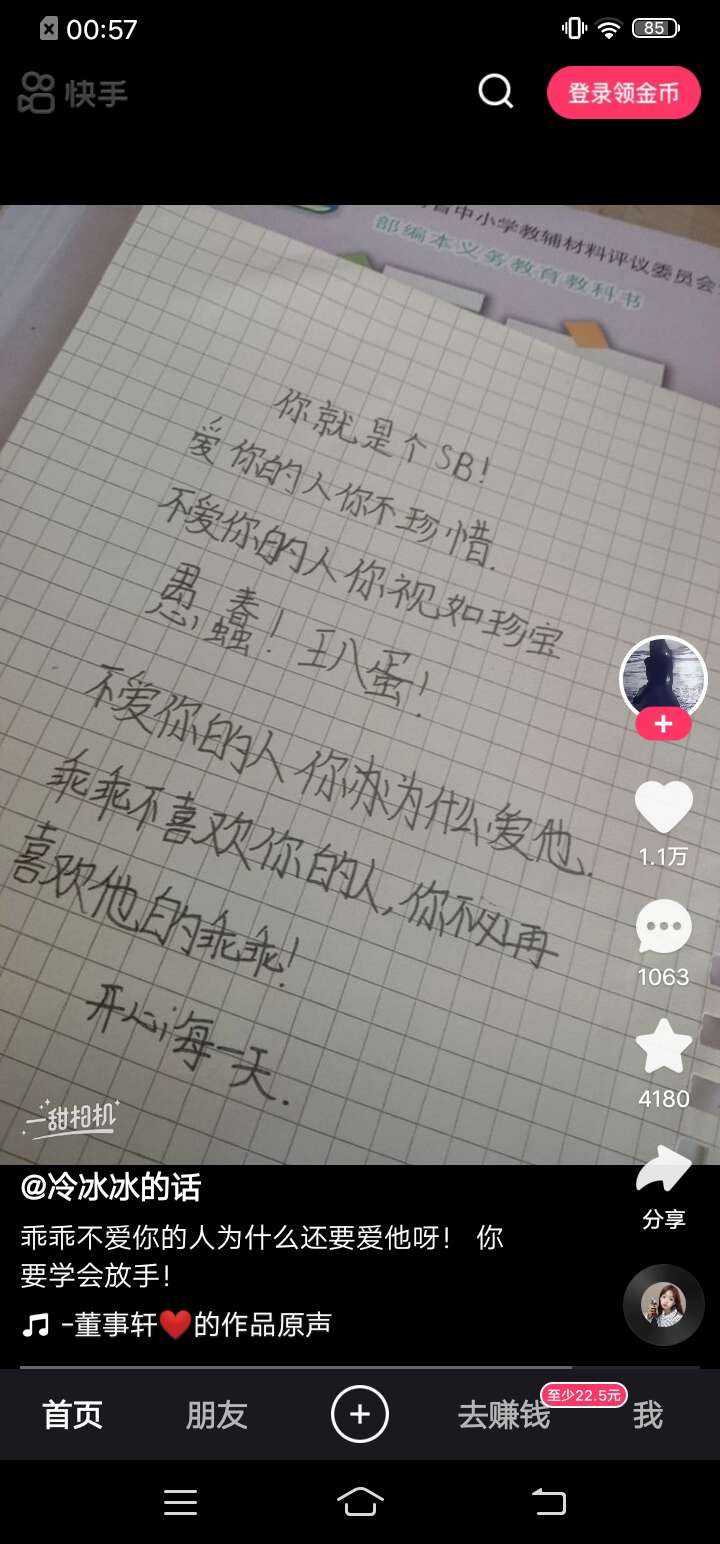 00:57
85
快手
登录领金币
中小学教辅材料评议委员会
部编本义务教育教科书
你就是个SB!
爱你的人你不珍惜.
不爱你的人你视如珍宝
愚蠢!王八蛋!
不爱你的人你为什么爱他.
乖乖不喜欢你的人,你不必再
喜欢他的乖乖!
开心每一天.
一甜相机
1.1万
1063
4180
分享
@冷冰冰的话
乖乖不爱你的人为什么还要爱他呀! 你
要学会放手!
-董事轩❤️的作品原声
首页
朋友
去赚钱
至少22.5元
我